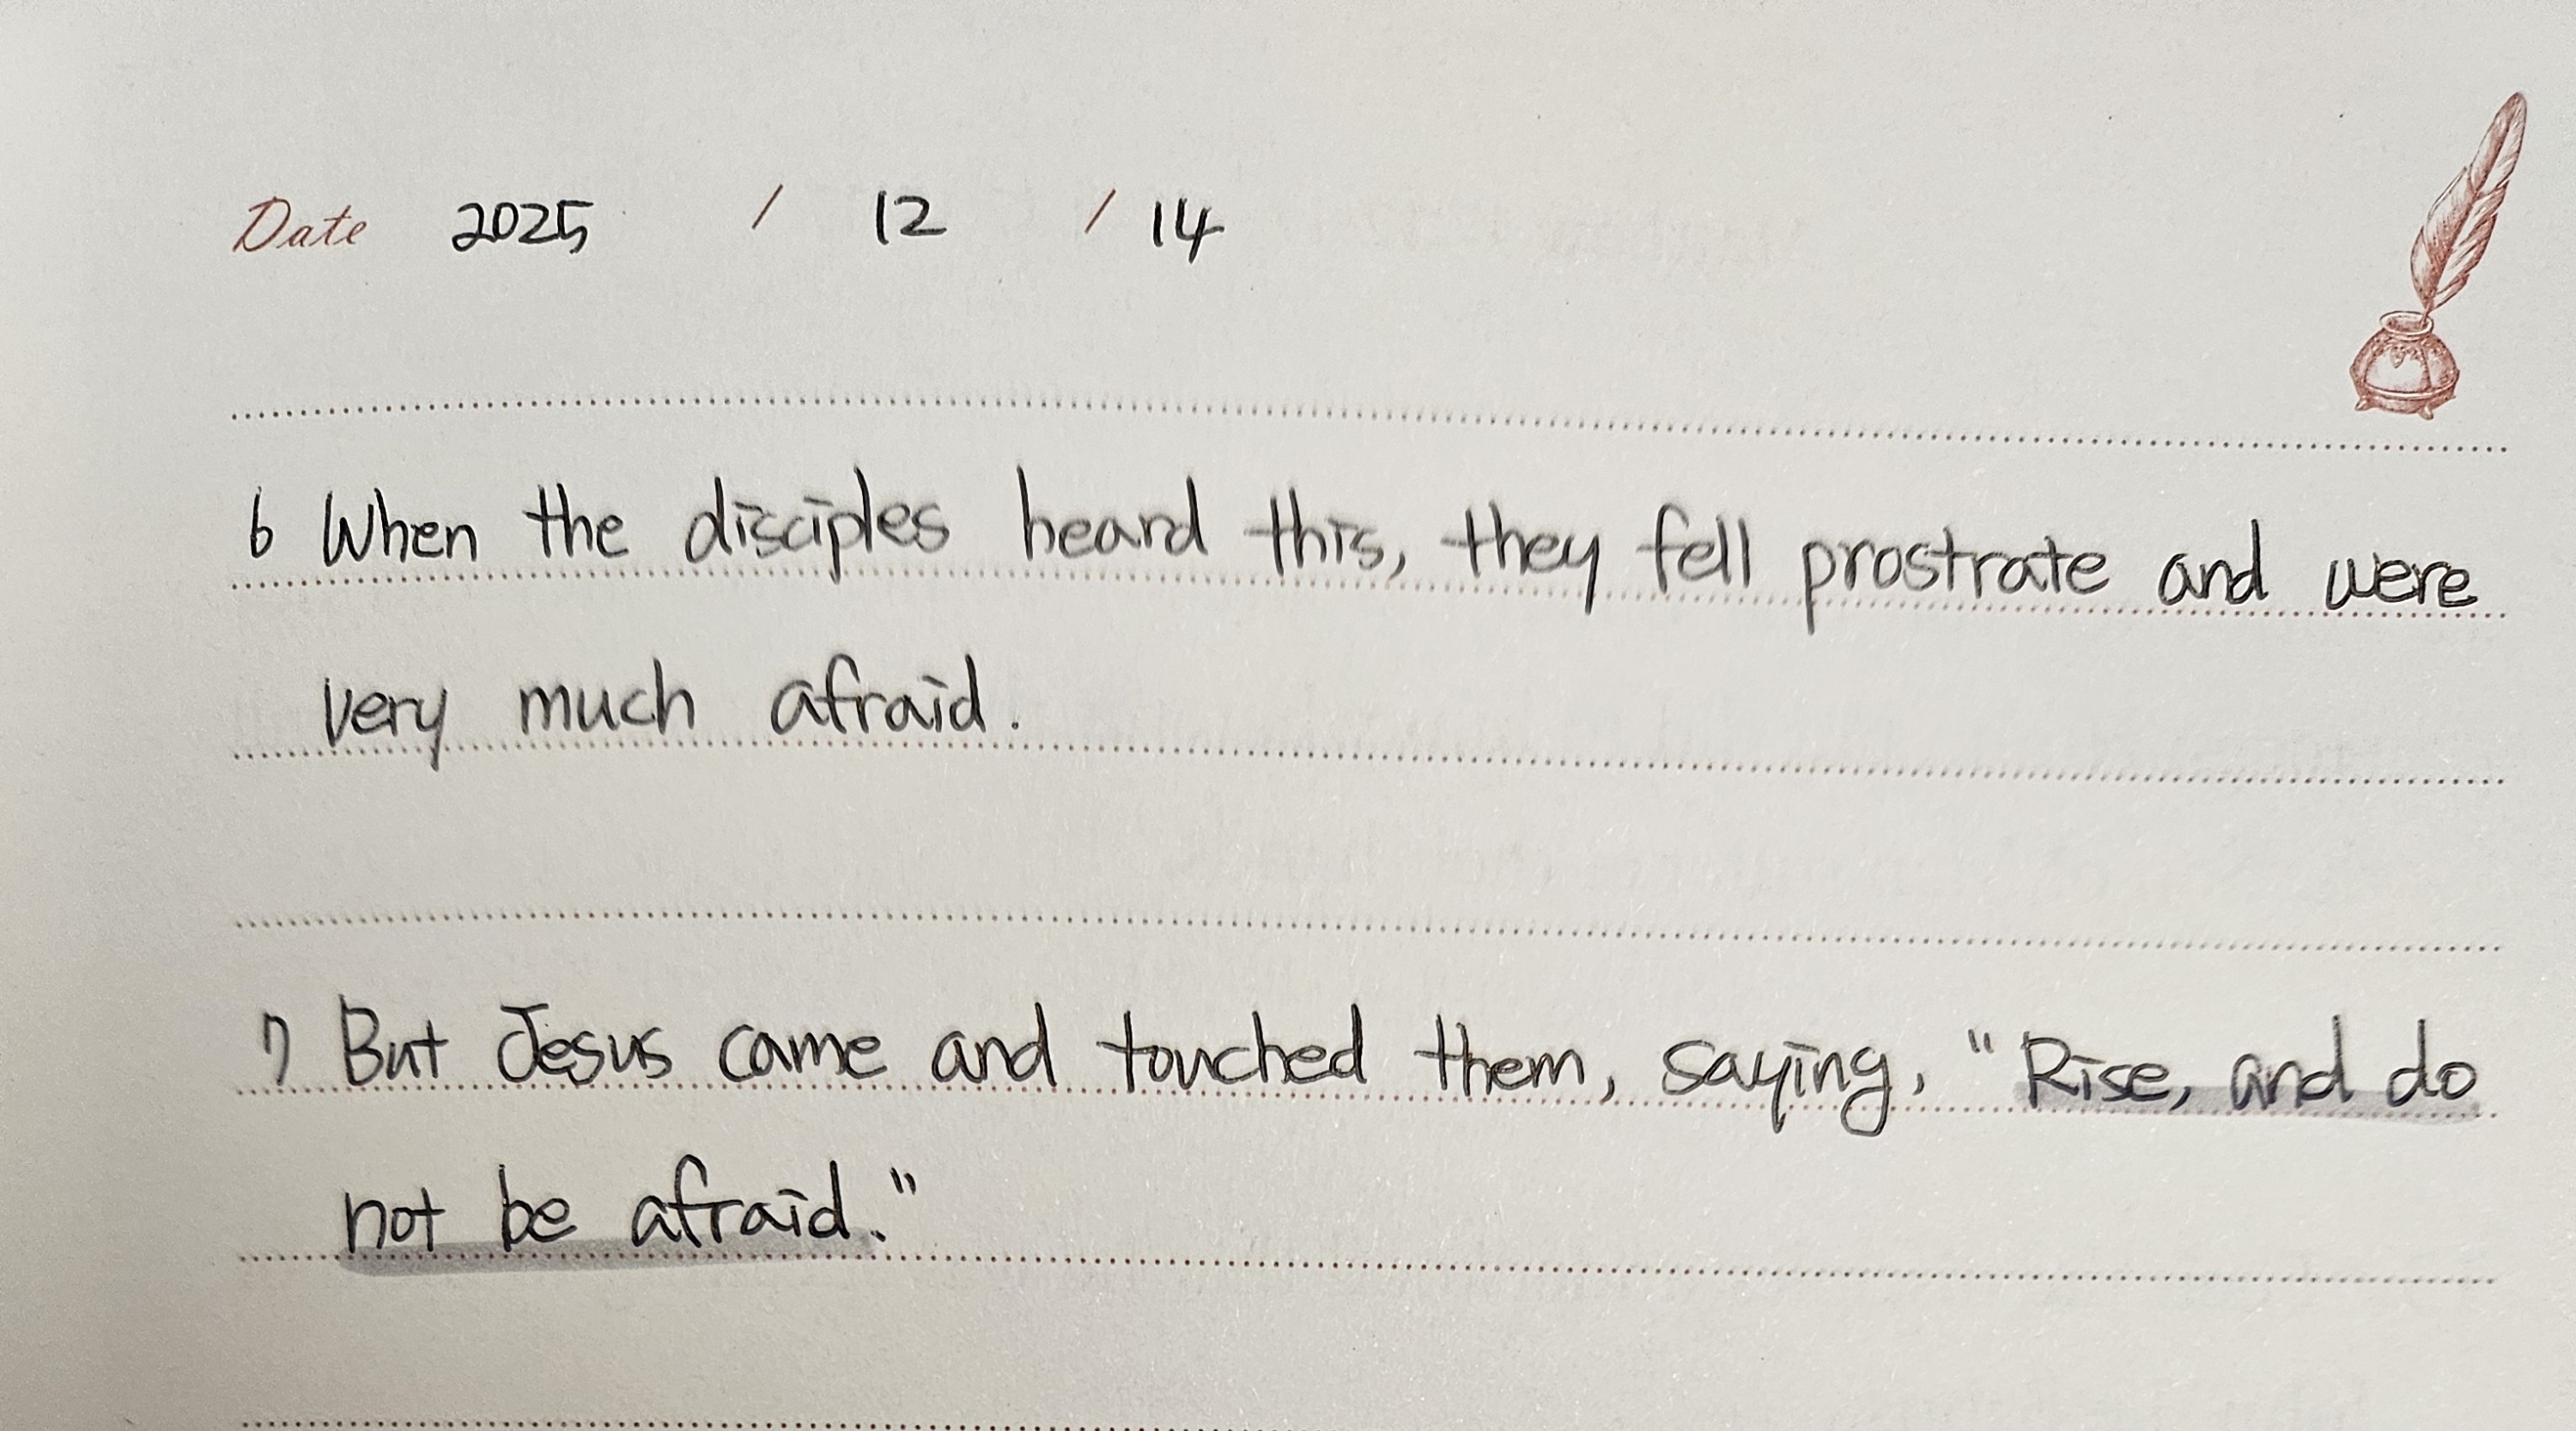 Date 2025 / 12 / 14
6 When the disciples heard this, they fell prostrate and were
very much afraid.
7 But Jesus came and touched them, saying, "Rise, and do
not be afraid."